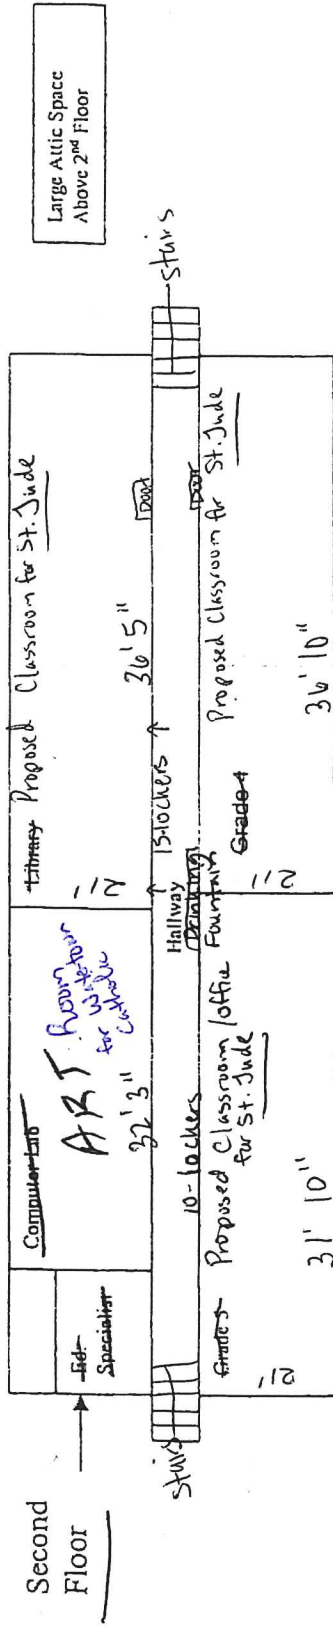 Second
Floor
Ed.
Specialist
Computer Lab
ART Room
for Watertown
Catholic
32' 3"
Library Proposed Classroom for St. Jude
21'
36' 5"
Door
Large Attic Space
Above 2nd Floor
stairs
10-lockers
Hallway
13-lockers
Drinking
Fountain
Door
stairs
Grade 5
Proposed Classroom/office
for St. Jude
21'
31' 10"
Grade 4
Proposed Classroom for St. Jude
21'
36' 10"